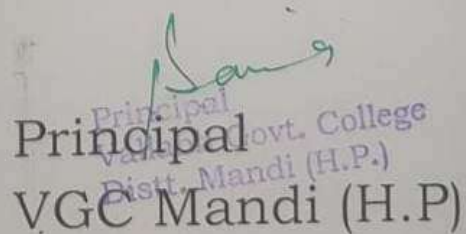 Principal
Govt. College
Distt. Mandi (H.P.)
Principal
VGC Mandi (H.P)